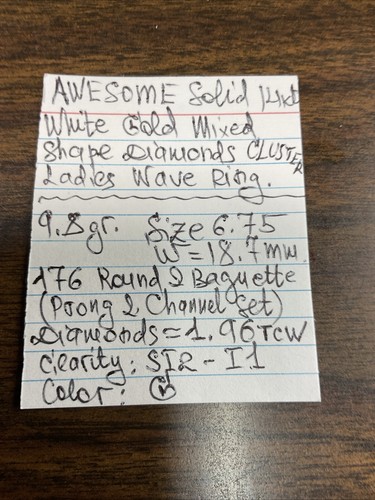 AWESOME Solid 14kt
White Gold Mixed
Shape Diamonds CLUSTER
Ladies Wave Ring.
9.8gr. Size 6.75
W = 18.7mm.
176 Round & Baguette
(Prong & Channel Set)
Diamonds = 1.96TCW
Clarity: SI2 - I1
Color: